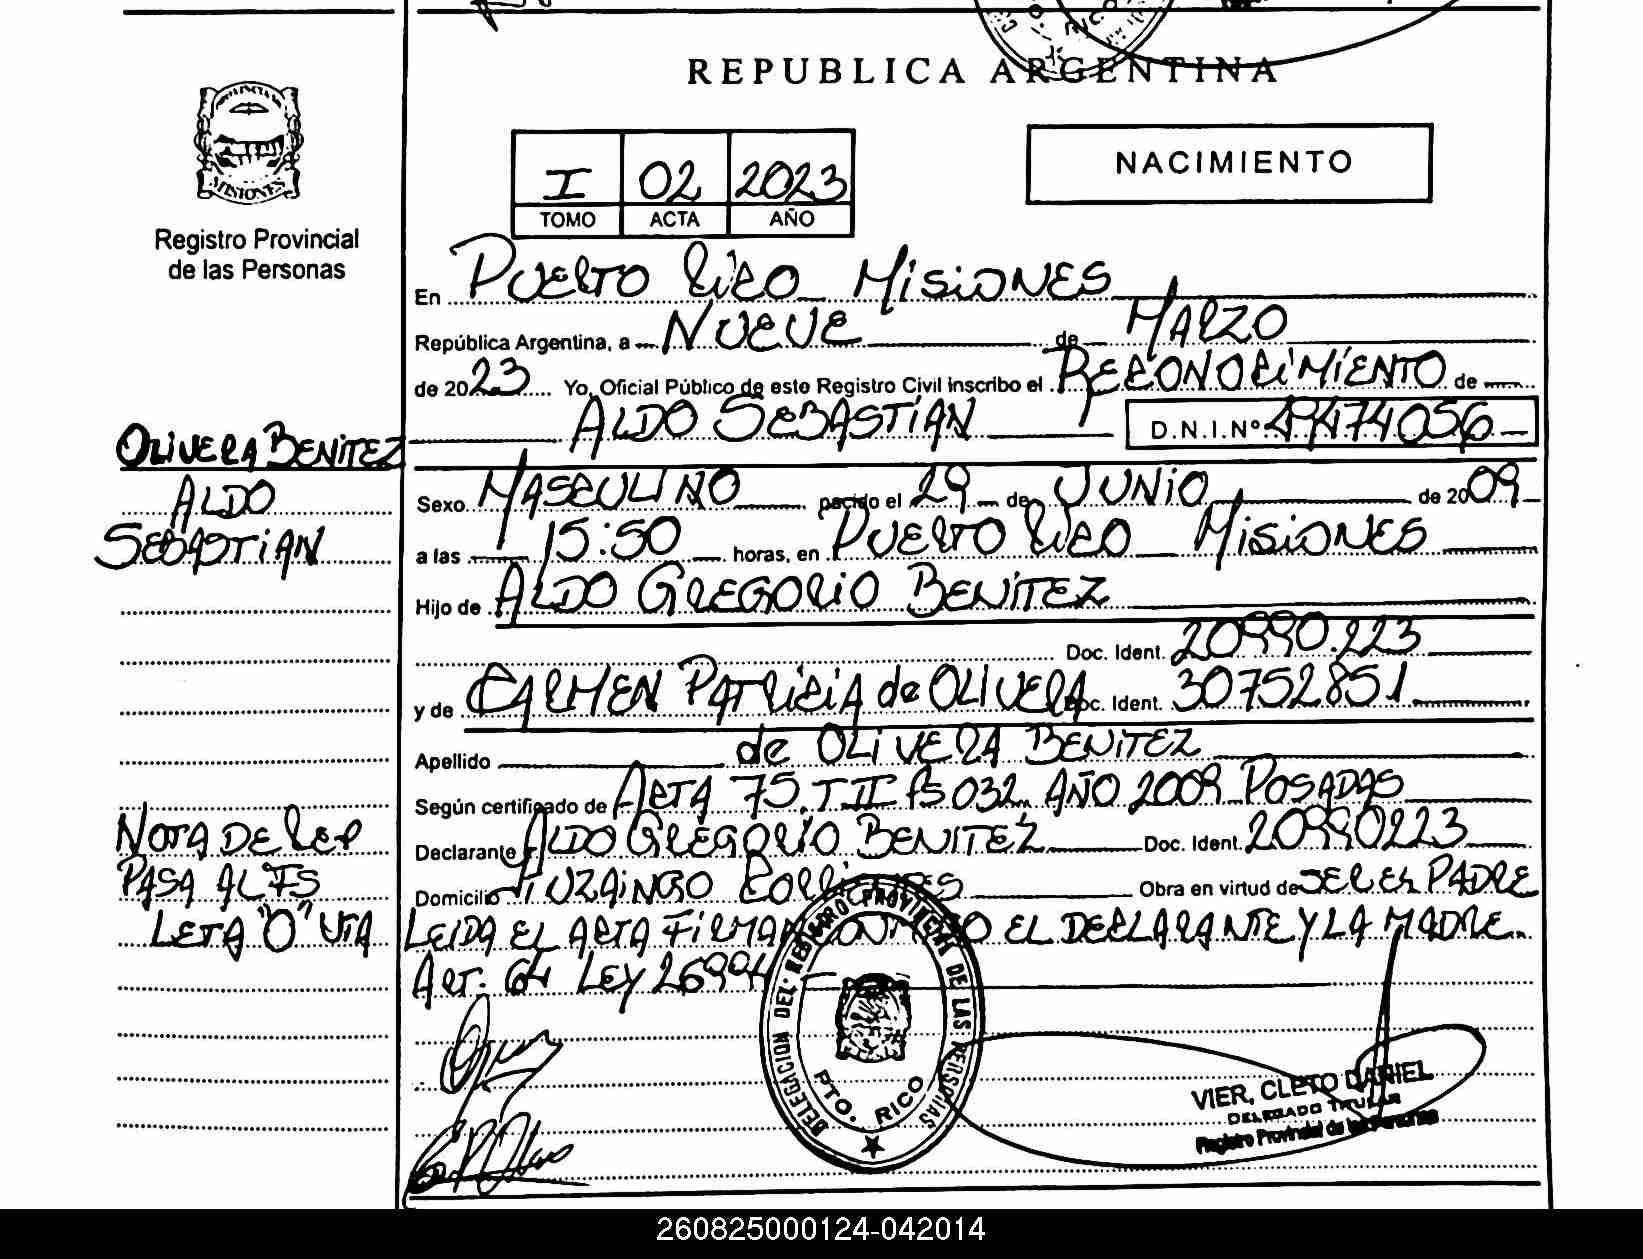 REPUBLICA ARGENTINA
MISIONES
Registro Provincial
de las Personas
I 02 2023
TOMO ACTA AÑO
NACIMIENTO
En PUERTO RICO MISIONES
República Argentina, a NUEVE de MARZO
de 2023 Yo, Oficial Público de este Registro Civil inscribo el RECONOCIMIENTO de
ALDO SEBASTIÁN D.N.I.Nº 49474056
OLIVERA BENITEZ
ALDO
SEBASTIAN
Sexo MASCULINO nacido el 29 de JUNIO de 2009
a las 15:50 horas, en PUERTO RICO MISIONES
Hijo de ALDO GREGORIO BENÍTEZ
Doc. Ident. 20990.223
y de CARMEN PATRICIA de OLIVERA Doc. Ident. 30752851
Apellido de OLIVERA BENITEZ
Según certificado de ACTA 75 T II Fs 032 AÑO 2009 POSADAS
Declarante ALDO GREGORIO BENITEZ Doc. Ident. 20990223
Domicilio ITUZAINGO CORRIENTES Obra en virtud de SER EL PADRE
LEIDA EL ACTA FIRMAN CONMIGO EL DECLARANTE Y LA MADRE
ART. 64 LEY 26994
NOTA DE REF
PASA AL Fs
LETRA "O" VTA
DELEGACION DEL REGISTRO PROVINCIAL DE LAS PERSONAS
PTO. RICO
VIER, CLETO DANIEL
DELEGADO TITULAR
Registro Provincial de las Personas
260825000124-042014